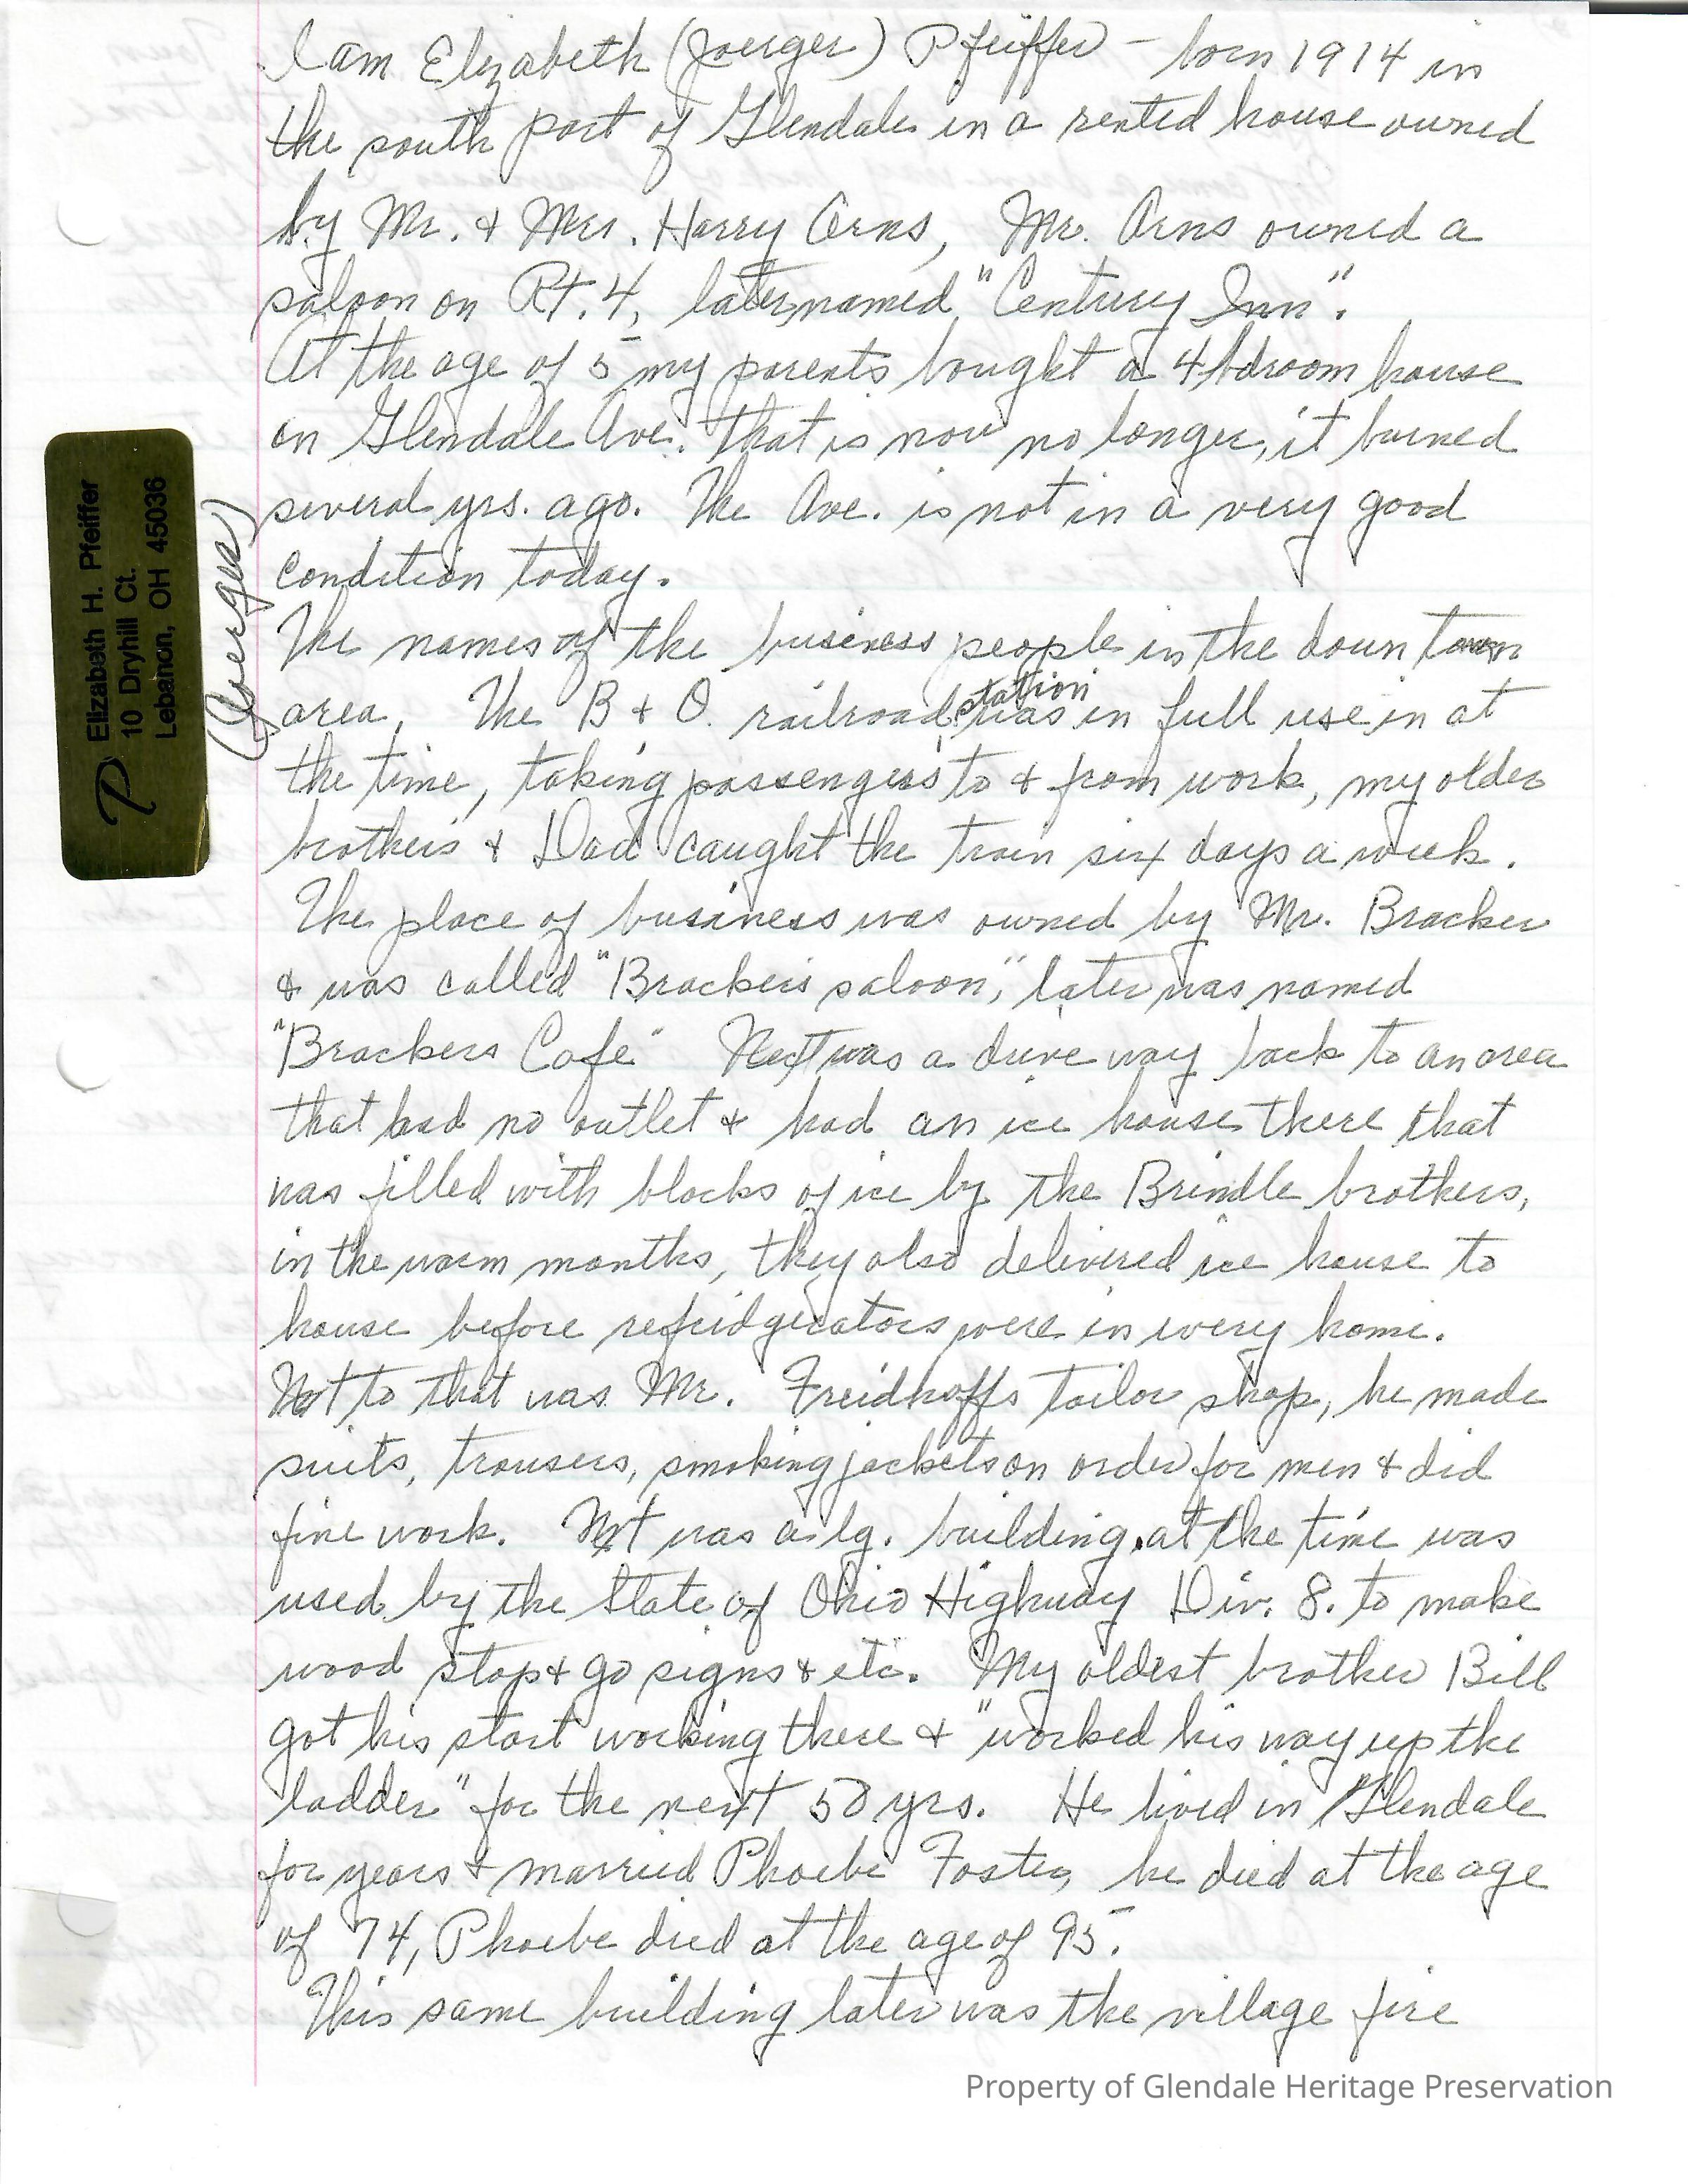 I am Elizabeth (Joerger) Pfeiffer - born 1914 in
the south part of Glendale in a rented house owned
by Mr. & Mrs. Harry Arns, Mr. Arns owned a
saloon on Rt. 4, later named "Century Inn".
At the age of 5 my parents bought a 4 bdroom house
on Glendale Ave. that is now no longer, it burned
several yrs. ago. The Ave. is not in a very good
condition today.
The names of the business people in the down town
area. The B & O. railroad station was in full use in at
the time, taking passengers to & from work, my older
brothers & Dad caught the train six days a week.
The place of business was owned by Mr. Bracker
& was called "Brackers saloon", later was named
"Brackers Cafe" Next was a drive way back to an area
that had no outlet & had an ice house there that
was filled with blocks of ice by the Brindle brothers,
in the warm months, they also delivered ice house to
house before refridgerators were in every home.
Next to that was Mr. Freidhoffs tailor shop, he made
suits, trousers, smoking jackets on order for men & did
fine work. Next was a lg. building at the time was
used by the State of Ohio Highway Div. 8. to make
wood stop & go signs & etc. My oldest brother Bill
got his start working there & "worked his way up the
ladder" for the next 50 yrs. He lived in Glendale
for years & married Phoebe Foster, he died at the age
of 74, Phoebe died at the age of 95.
This same building later was the village fire
Elizabeth H. Pfeiffer
10 Dryhill Ct.
Lebanon, OH 45036
P
(Joerger)
Property of Glendale Heritage Preservation